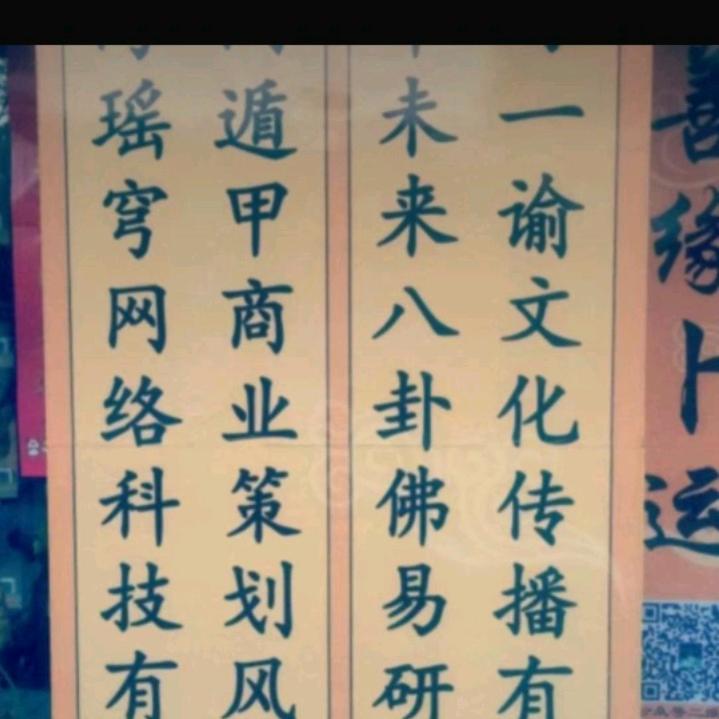 善缘卜运
一谕文化传播有
未来八卦佛易研
遁甲商业策划风
瑶穹网络科技有